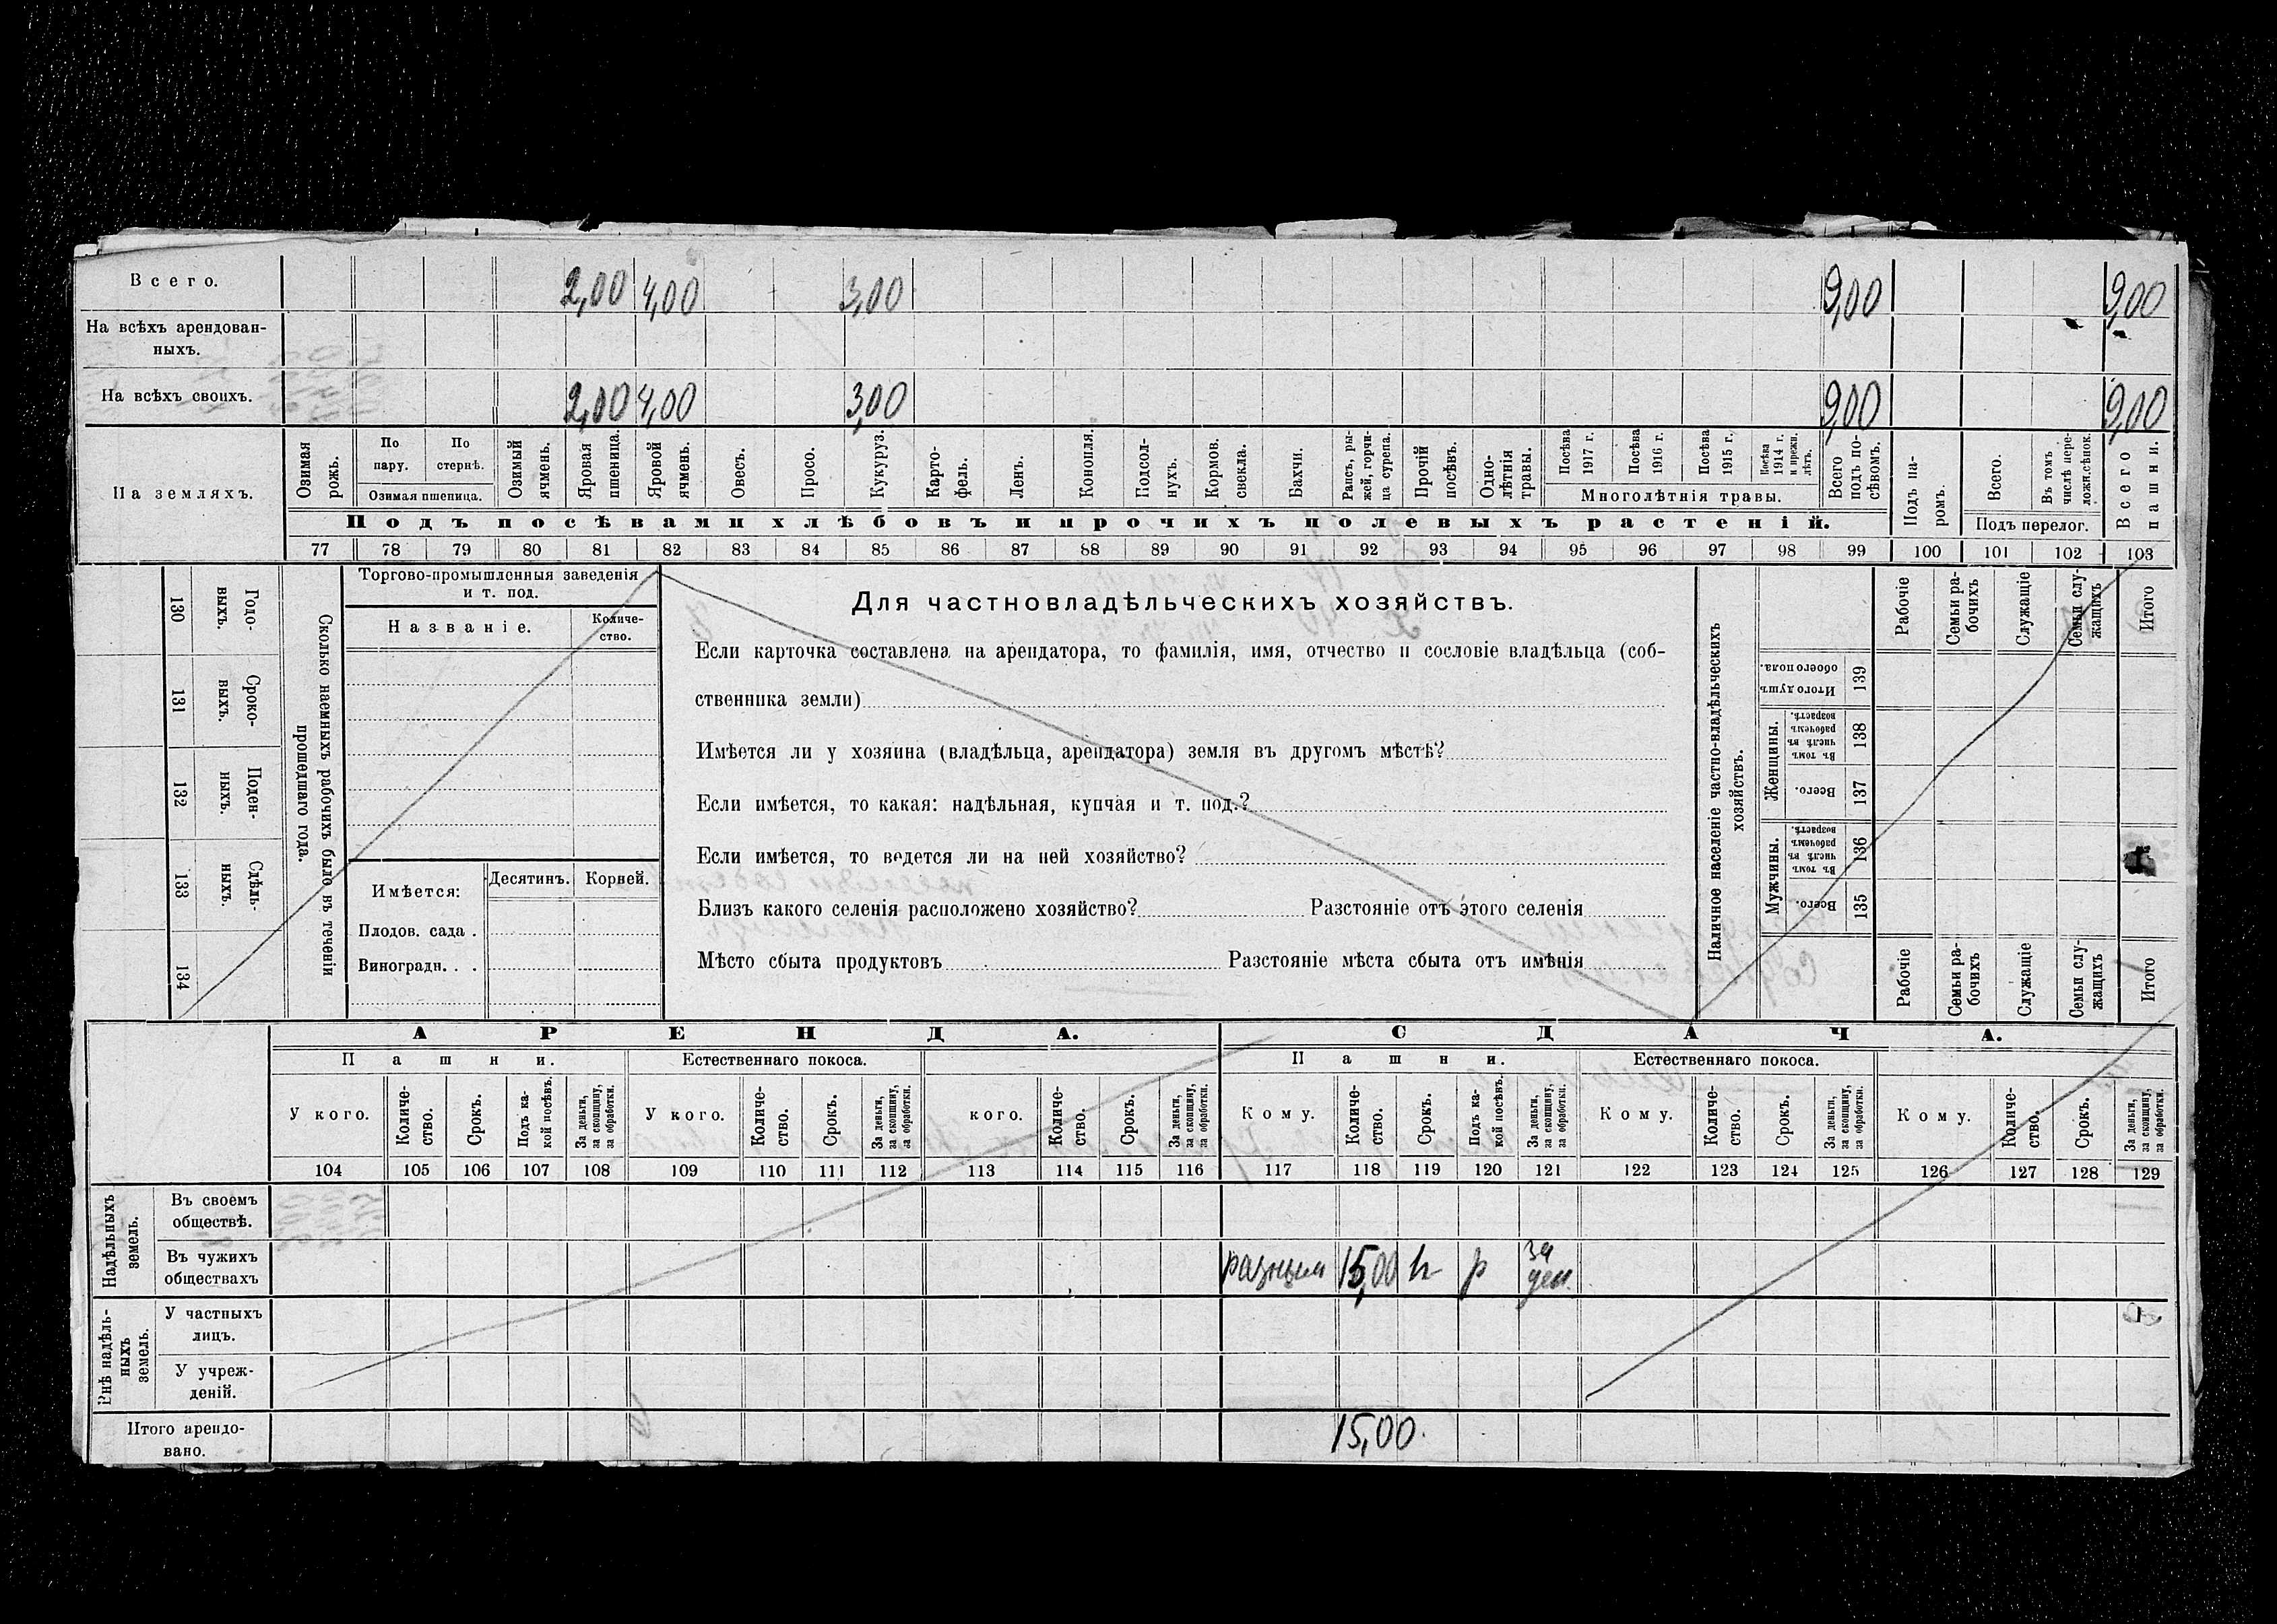 Всего. 2,00 4,00 3,00 9,00 9,00
На всѣхъ арендован-
ныхъ.
На всѣхъ своихъ. 2,00 4,00 3,00 9,00 9,00
На земляхъ.
Озимая рожь.
По пару.
По стернѣ.
Озимая пшеница.
Озимый ячмень.
Яровая пшеница.
Яровой ячмень.
Овесъ.
Просо.
Кукуруз.
Карто-
фель.
Ленъ.
Конопля.
Подсол-
нухъ.
Кормов. свекла.
Бахчи.
Рапсъ, ры-
жей, горчи-
ца сурепа.
Прочій посѣвъ.
Одно-
лѣтнія травы.
Посѣва 1917 г.
Посѣва 1916 г.
Посѣва 1915 г.
Посѣва 1914 г. и прежн. лѣтъ.
Многолѣтнія травы.
Всего подъ по-
сѣвомъ.
Подъ па-
ромъ.
Всего.
Въ томъ числѣ пере-
ложн.сѣнок.
Подъ перелог.
Всего пашни.
Подъ посѣвами хлѣбовъ и прочихъ полевыхъ растеній.
77 78 79 80 81 82 83 84 85 86 87 88 89 90 91 92 93 94 95 96 97 98 99 100 101 102 103
Сколько наемныхъ рабочихъ было въ теченіи
прошедшаго года.
Годо-
выхъ.
130
Сроко-
выхъ.
131
Поден-
ныхъ.
132
Сдѣль-
ныхъ.
133
134
Торгово-промышленныя заведенія
и т. под.
Названіе.
Количе-
ство.
Имѣется:
Десятинъ. Корней.
Плодов. сада .
Виноградн. . .
Для частновладѣльческихъ хозяйствъ.
Если карточка составлена на арендатора, то фамилія, имя, отчество и сословіе владѣльца (соб-
ственника земли)
Имѣется ли у хозяина (владѣльца, арендатора) земля въ другомъ мѣстѣ?
Если имѣется, то какая: надѣльная, купчая и т. под.?
Если имѣется, то ведется ли на ней хозяйство?
Близъ какого селенія расположено хозяйство? Разстояніе отъ этого селенія
Мѣсто сбыта продуктовъ Разстояніе мѣста сбыта отъ имѣнія
Наличное населеніе частно-владѣльческихъ
хозяйствъ.
Рабочіе
Семьи ра-
бочихъ
Служащіе
Семьи слу-
жащихъ
Итого
Итого душъ
обоего пола.
139
Женщины.
Въ томъ числѣ въ рабочемъ возрастѣ.
138
Всего.
137
Мужчины.
Въ томъ числѣ въ рабочемъ возрастѣ.
136
Всего.
135
Рабочіе
Семьи ра-
бочихъ
Служащіе
Семьи слу-
жащихъ
Итого
АРЕНДА. СДАЧА.
Пашни. Естественнаго покоса. Пашни. Естественнаго покоса.
У кого.
Количе-
ство.
Срокъ.
Подъ ка-
кой посѣвъ.
За деньги, за скопщину, за обработки.
У кого.
Количе-
ство.
Срокъ.
За деньги, за скопщину, за обработки.
кого.
Количе-
ство.
Срокъ.
За деньги, за скопщину, за обработки.
Кому.
Количе-
ство.
Срокъ.
Подъ ка-
кой посѣвъ.
За деньги, за скопщину, за обработки.
Кому.
Количе-
ство.
Срокъ.
За деньги, за скопщину, за обработки.
Кому.
Количе-
ство.
Срокъ.
За деньги, за скопщину, за обработки.
104 105 106 107 108 109 110 111 112 113 114 115 116 117 118 119 120 121 122 123 124 125 126 127 128 129
Надѣльныхъ
земель.
Въ своемъ
обществѣ.
Въ чужихъ
обществахъ
разнымъ 15,00 р за
ден.
Внѣ надѣль-
ныхъ
земель.
У частныхъ
лицъ.
У учреж-
деній.
Итого арендо-
вано.
15,00.